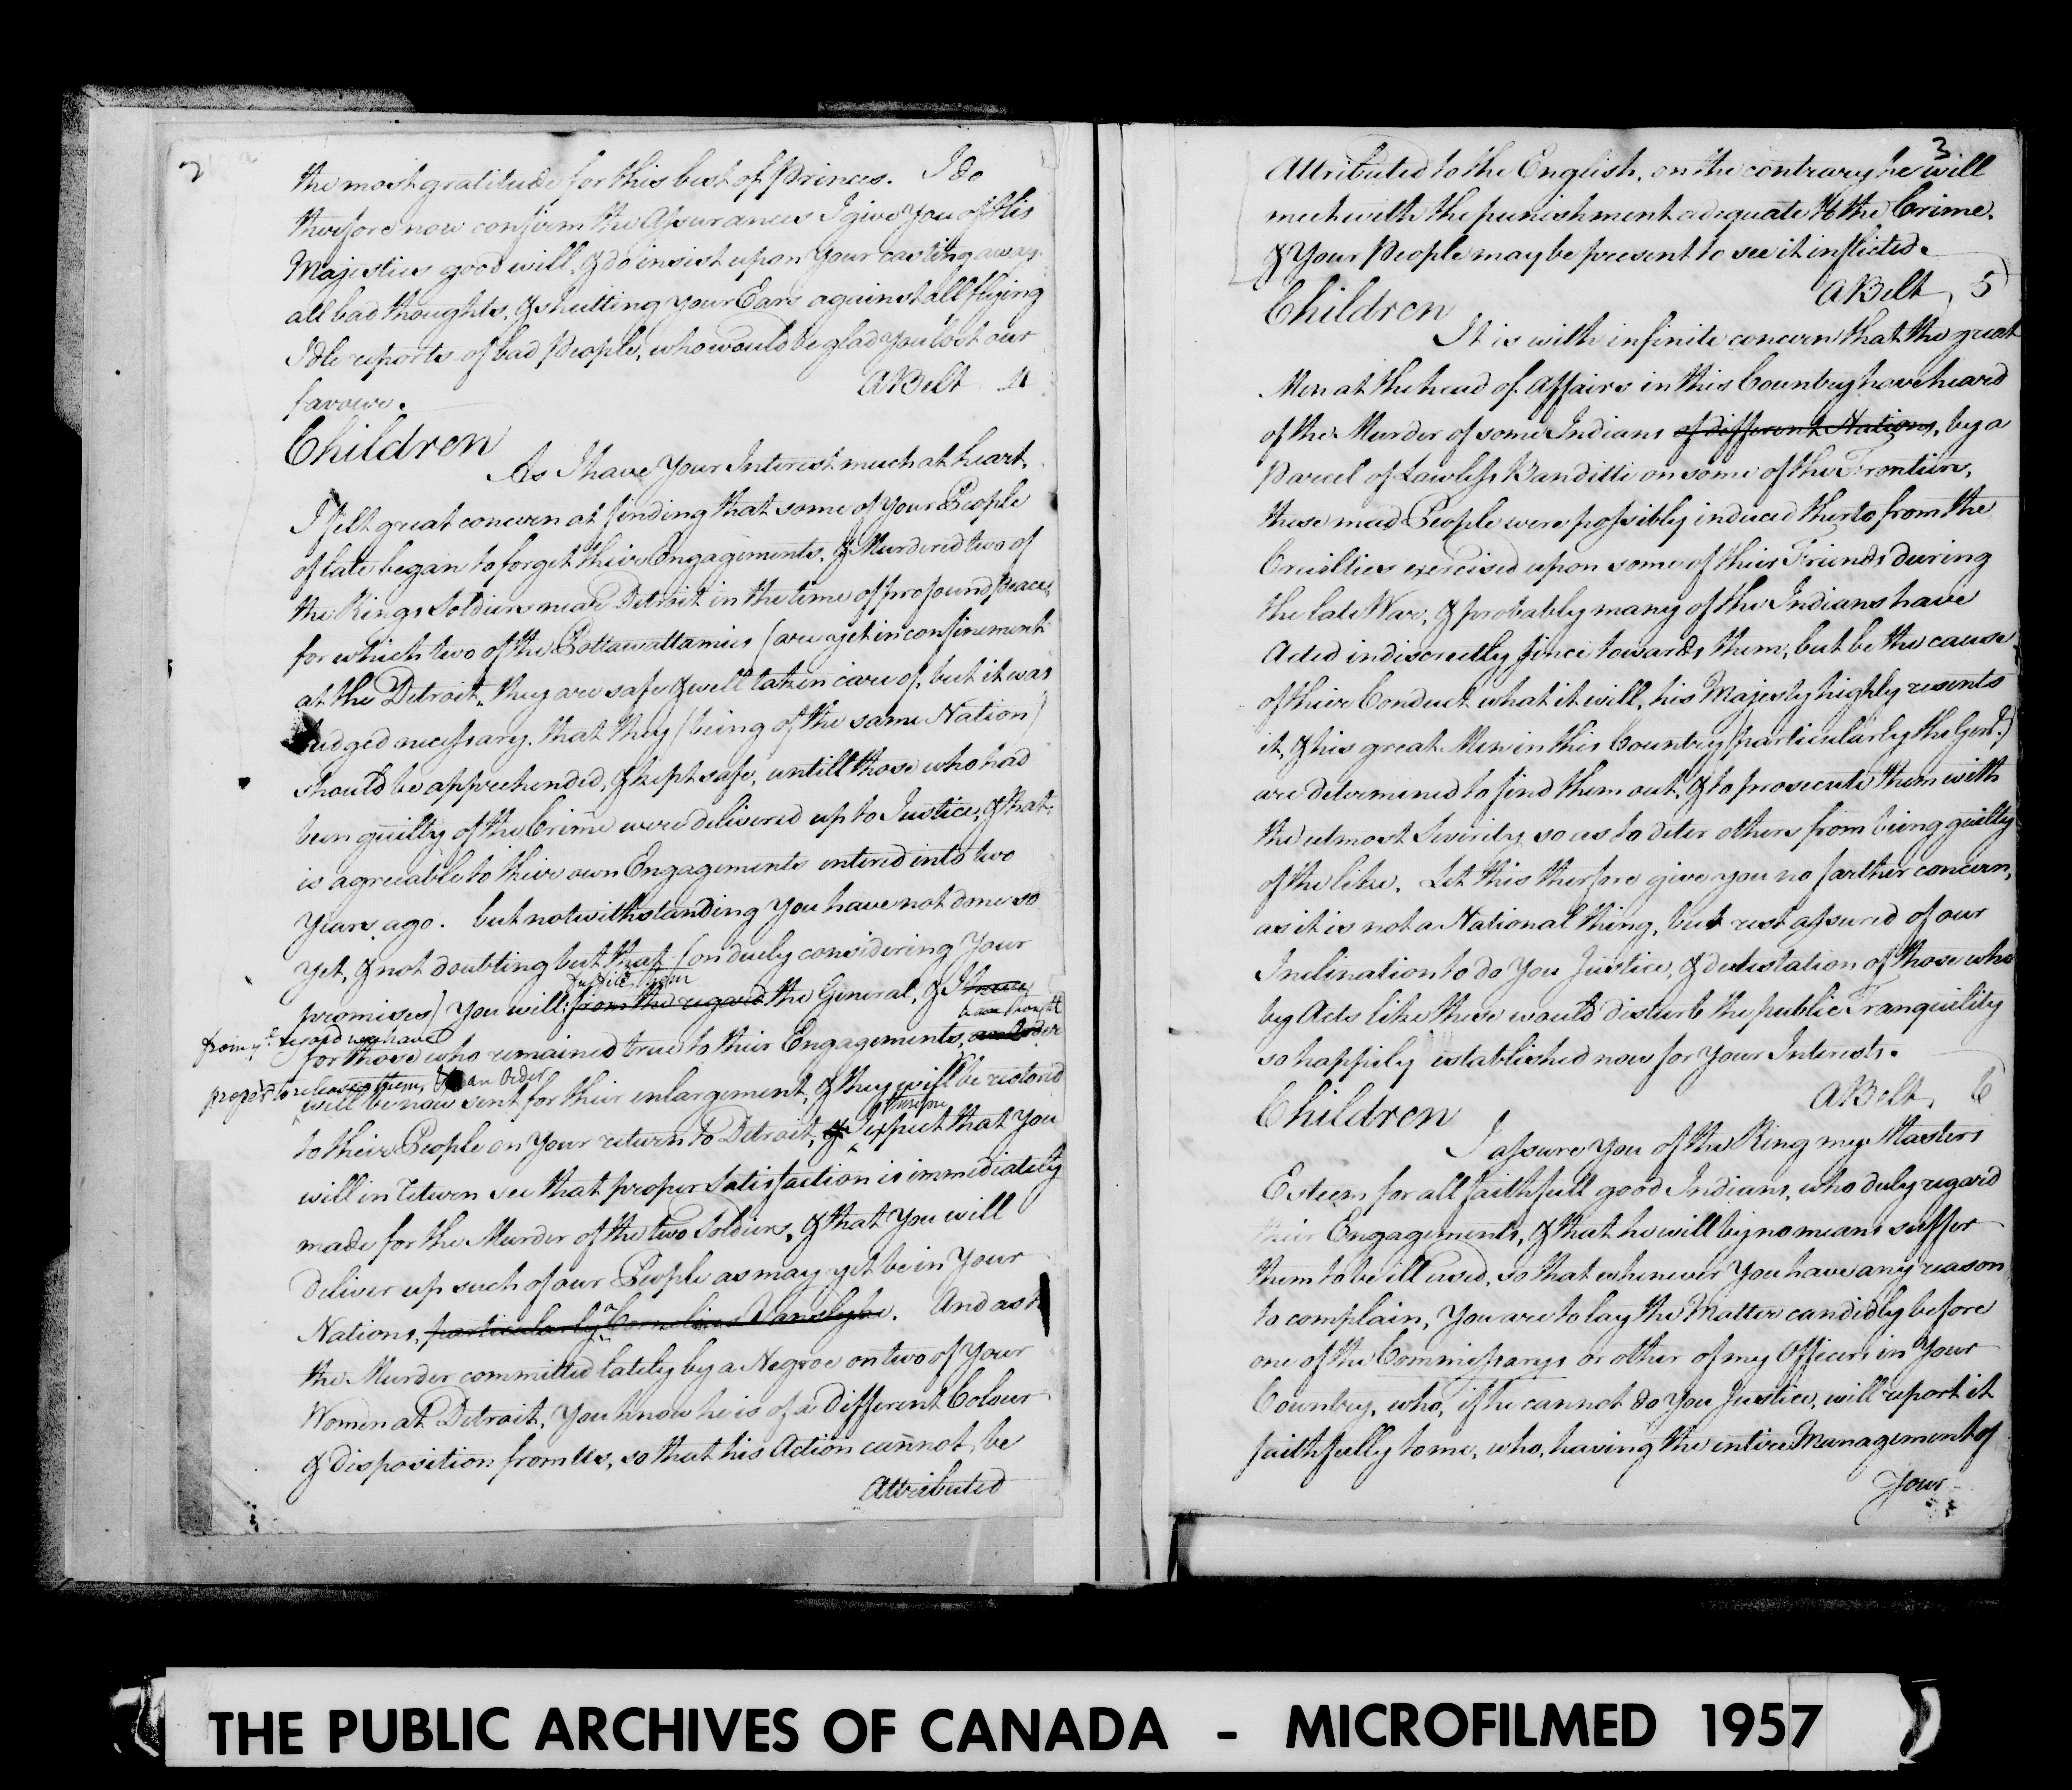 2
the most gratitude for this best of Princes. I do
therefore now confirm the Assurances I give You of His
Majesties good will, & do insist upon Your casting away
all bad thoughts, & shutting your Ears against all flying
Idle reports of bad People, who would be glad you lost our
favour.
A Belt 4
Children
As I have Your Interest much at heart,
I felt great concern at finding that some of your People
of late began to forget their Engagements, & Murdered two of
the Kings Soldiers near Detroit in the time of profound Peace,
for which two of the Pottawattamies (are yet in confinement
at the Detroit, they are safe & well taken care of, but it was
Judged necessary, that they (being of the same Nation)
should be apprehended, & kept safe, untill those who had
been guilty of the Crime were delivered up to Justice, & that
is agreeable to their own Engagements entered into two
Years ago. but notwithstanding You have not done so
yet, & not doubting but that (on duely considering Your
promises) You will from the regard the General, & I have
from ye. regard we have
for those who remained true to their Engagements, and order
have thought
proper to release them, & an Order
will be now sent for their enlargement, & they will be restored
to their People on Your return to Detroit, & I expect that You
therefore
will in return see that proper Satisfaction is immediately
made for the Murder of the two Soldiers, & that You will
deliver up such of our People as may yet be in Your
Nations, particularly a Cornelius Vanslyke. And as to
the Murder committed lately by a Negroe on two of Your
Women at Detroit, You know he is of a different Colour
& Disposition from Us, so that his Action cannot be
Attributed
3.
Attributed to the English, on the contrary he will
meet with the punishment adequate to the Crime.
& Your People may be present to see it inflicted.
A Belt, 5
Children
It is with infinite concern that the great
Men at the head of Affairs in this Country have heard
of the Murder of some Indians of different Nations, by a
Parcel of Lawless Banditti on some of the Frontiers,
these mad People were possibly induced thereto from the
Cruelties exercised upon some of their Friends during
the late War, & probably many of the Indians have
Acted indiscreetly since towards them, but be the cause
of their Conduct what it will, his Majesty highly resents
it, & his great Men in this Country (particularly the Genl.)
are determined to find them out, & to prosecute them with
the utmost Severity, so as to deter others from being guilty
of the like. Let this therefore give you no farther concern,
as it is not a National thing, but rest assured of our
Inclination to do You Justice, & detestation of those who
by Acts like these would disturb the public Tranquility
so happily established now for Your Interests.
A Belt, 6
Children
I assure You of the King my Masters
Esteem for all faithfull good Indians, who duly regard
their Engagements, & that he will by no means suffer
them to be ill used, so that whenever You have any reason
to complain, You are to lay the Matter candidly before
one of the Commissarys or other of my Officers in Your
Country, who, if he cannot do You Justice, will report it
faithfully to me, who, having the entire Management of
Your
THE PUBLIC ARCHIVES OF CANADA - MICROFILMED 1957